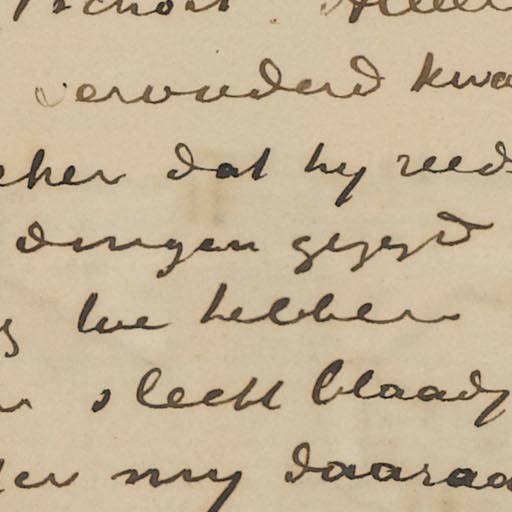 verouderd kwa
eker dat hy reeds
dingen gezegd
we hebben
slecht blaadj
my daaraa